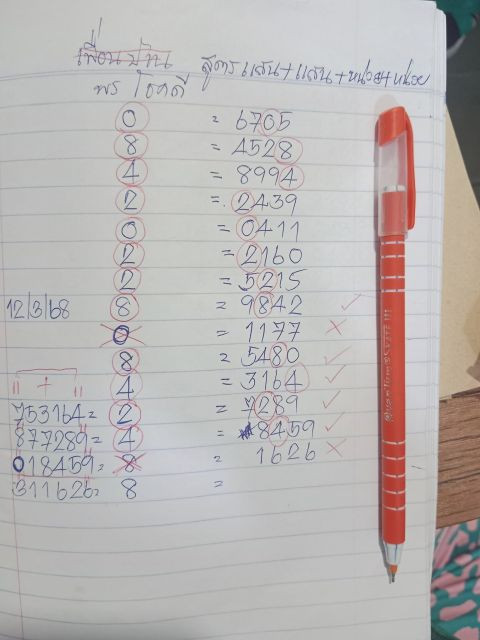 เพื่อนบ้าน สูตรแสน+แสน+หน่วย+หน่วย
พร โชคดี
0 = 6705
8 = 4528
4 = 8994
2 = 2439
0 = 0411
2 = 2160
2 = 5215
12/3/68 8 = 9842 ✓
0 = 1177 ×
8 = 5480 ✓
4 = 3164 ✓
753164= 2 = 7289 ✓
877289= 4 = 8459 ✓
018459= 8 = 1626 ×
311626= 8 =